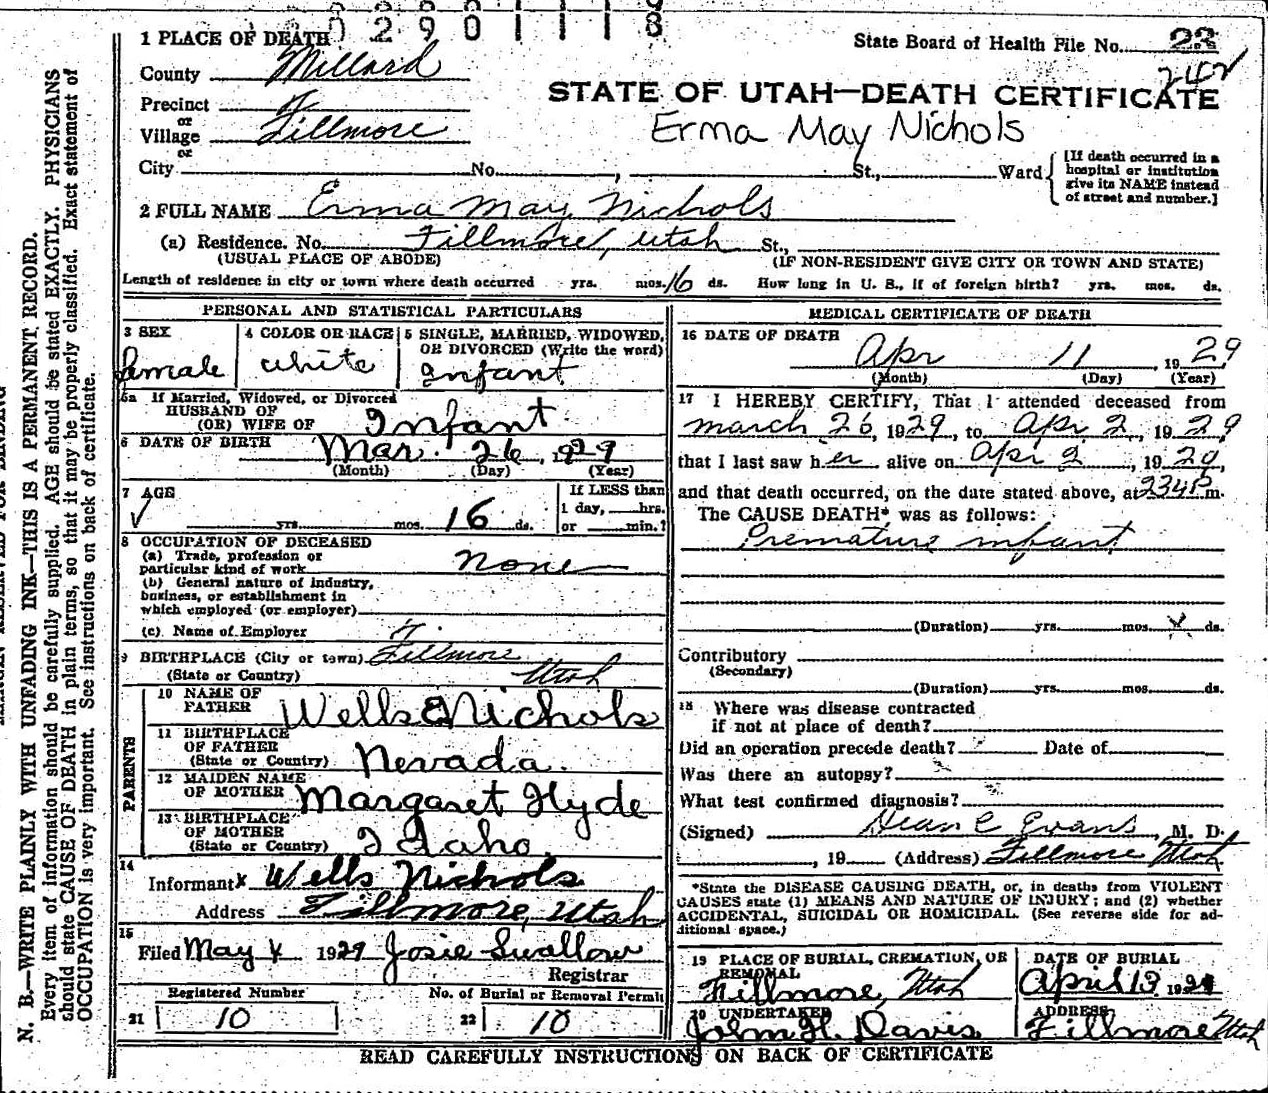 0 2 9 0 1 1 1 8
1 PLACE OF DEATH
State Board of Health File No. 23
242
County Millard
STATE OF UTAH—DEATH CERTIFICATE
Precinct
or
Village Fillmore
Erma May Nichols
or
City No. , St., Ward
[If death occurred in a hospital or institution give its NAME instead of street and number.]
2 FULL NAME Erma May Nichols
(a) Residence. No. Fillmore, Utah St.,
(USUAL PLACE OF ABODE) (IF NON-RESIDENT GIVE CITY OR TOWN AND STATE)
Length of residence in city or town where death occurred yrs. mos. 16 ds. How long in U. S., if of foreign birth? yrs. mos. ds.
PERSONAL AND STATISTICAL PARTICULARS
3 SEX
female
4 COLOR OR RACE
white
5 SINGLE, MARRIED, WIDOWED,
OR DIVORCED (Write the word)
Infant
5a If Married, Widowed, or Divorced
HUSBAND OF
(OR) WIFE OF Infant
6 DATE OF BIRTH Mar. 26, 1929
(Month) (Day) (Year)
7 AGE
yrs. mos. 16 ds.
If LESS than
1 day, hrs.
or min.?
8 OCCUPATION OF DECEASED
(a) Trade, profession or
particular kind of work none
(b) General nature of industry,
business, or establishment in
which employed (or employer)
(c) Name of Employer
9 BIRTHPLACE (City or town) Fillmore
(State or Country) Utah
PARENTS
10 NAME OF
FATHER Wells E Nichols
11 BIRTHPLACE
OF FATHER
(State or Country) Nevada.
12 MAIDEN NAME
OF MOTHER Margaret Hyde
13 BIRTHPLACE
OF MOTHER
(State or Country) Idaho.
14
Informant x Wells Nichols
Address Fillmore, Utah
15
Filed May 4 1929 Josie Swallow
Registrar
Registered Number
21 10
No. of Burial or Removal Permit
22 10
MEDICAL CERTIFICATE OF DEATH
16 DATE OF DEATH
Apr 11, 1929
(Month) (Day) (Year)
17 I HEREBY CERTIFY, That I attended deceased from
march 26, 1929, to Apr 2, 1929
that I last saw her alive on Apr 2, 1929,
and that death occurred, on the date stated above, at 234P m.
The CAUSE DEATH* was as follows:
Premature infant
(Duration) yrs. mos. ds.
Contributory
(Secondary)
(Duration) yrs. mos. ds.
18 Where was disease contracted
if not at place of death?
Did an operation precede death? Date of
Was there an autopsy?
What test confirmed diagnosis?
(Signed) Dean C Evans, M. D.
, 19 (Address) Fillmore Utah
*State the DISEASE CAUSING DEATH, or, in deaths from VIOLENT
CAUSES state (1) MEANS AND NATURE OF INJURY; and (2) whether
ACCIDENTAL, SUICIDAL OR HOMICIDAL. (See reverse side for ad-
ditional space.)
19 PLACE OF BURIAL, CREMATION, OR
REMOVAL
Fillmore, Utah
DATE OF BURIAL
April 13 1929
20 UNDERTAKER
John H. Davis
ADDRESS
Fillmore Utah
READ CAREFULLY INSTRUCTIONS ON BACK OF CERTIFICATE
N. B.—WRITE PLAINLY WITH UNFADING INK—THIS IS A PERMANENT RECORD.
Every item of information should be carefully supplied. AGE should be stated EXACTLY. PHYSICIANS
should state CAUSE OF DEATH in plain terms, so that it may be properly classified. Exact statement of
OCCUPATION is very important. See instructions on back of certificate.